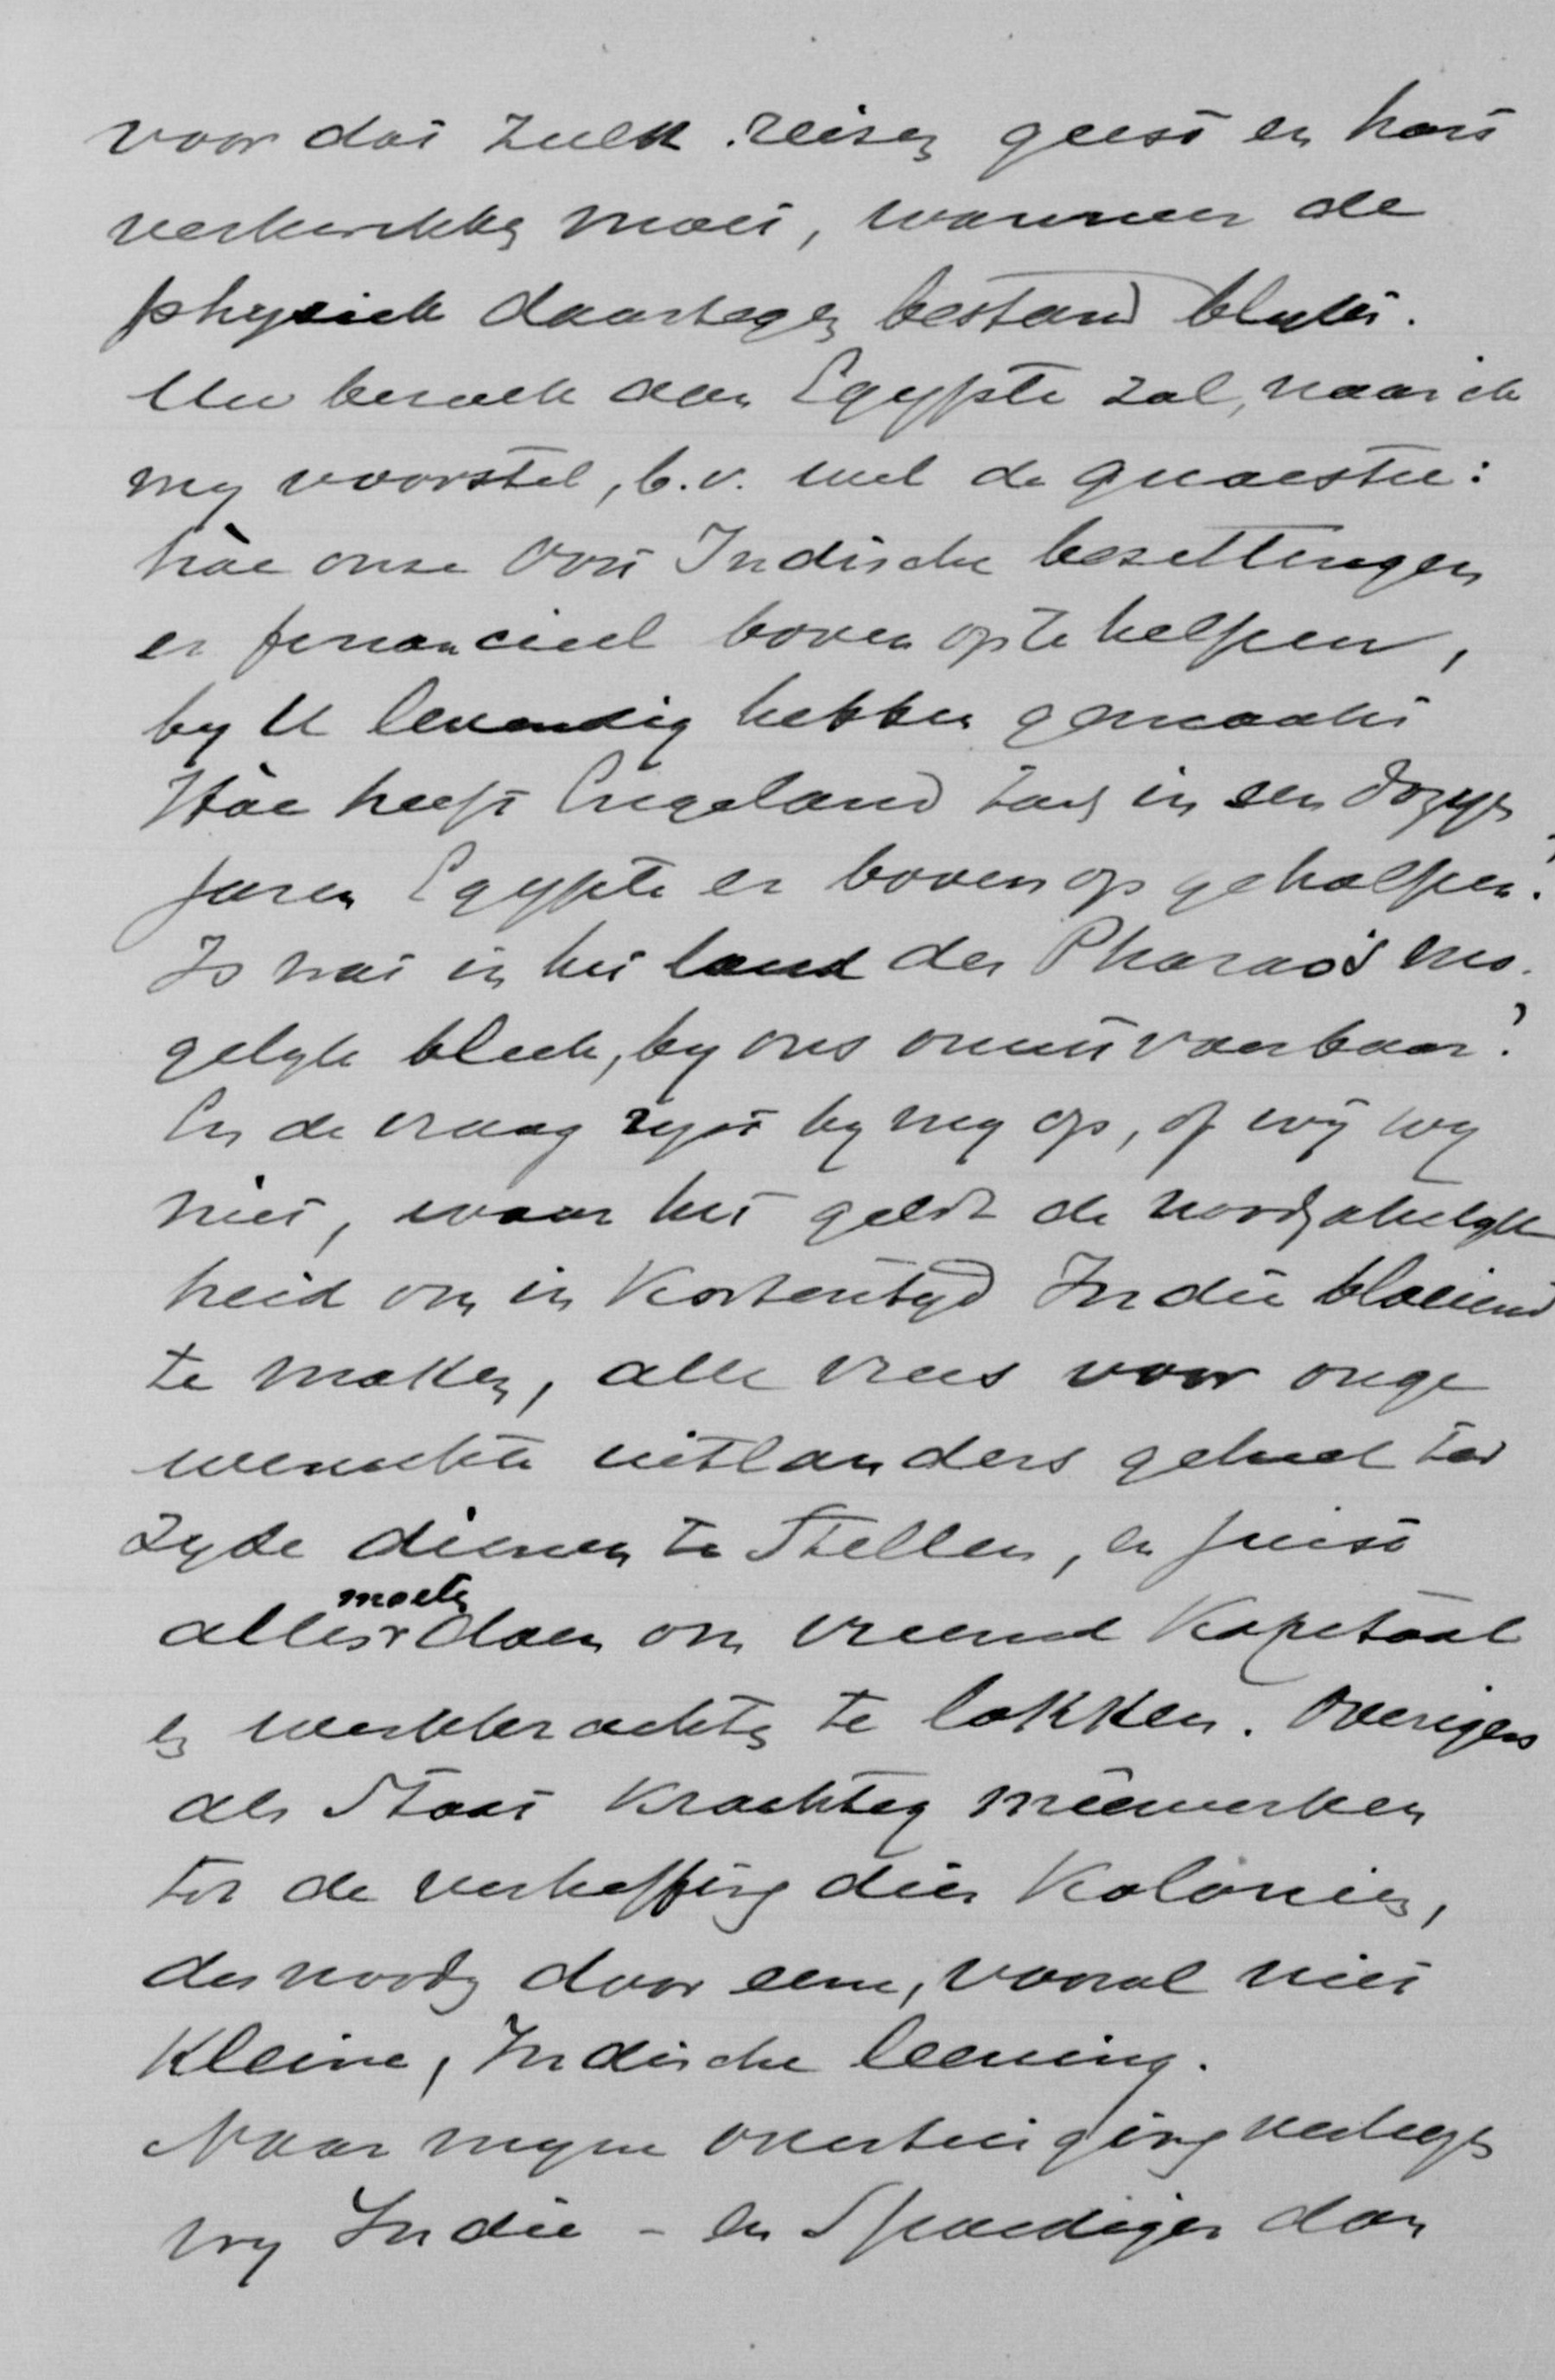 voor dat zulk reizen geest en hart
verkwikken moet, wanneer de
physiek daartegen bestand blykt.
Uw bezoek aan Egypte zal, naar ik
my voorstel, b.v. wel de quaestie:
hòe onze Oost Indische bezettingen
er financieel boven op te helpen,
by U levendig hebben gemaakt
Hòe heeft Engeland toch in een dozyn
jaren Egypte er boven op geholpen?
Is wat in het land der Pharao's mo-
gelyk bleek, by ons onuitvoerbaar?
En de vraag ryst by my op, of wij
niet, waar het geldt de noodzakelyk
heid om in korten tyd Indië bloeiend
te maken, alle vrees voor onge
wenschte uitlanders geheel ter
zyde dienen te stellen, en juist
alles moeten doen om vreemd Kapitaal
en werkkrachten te lokken. Overigens
als Staat krachtig meewerken
tot de verheffing dier Koloniën,
desnoods door eene, vooral niet
kleine, Indische leening.
Naar myne overtuiging verliezen
wy Indië - en spoediger dan